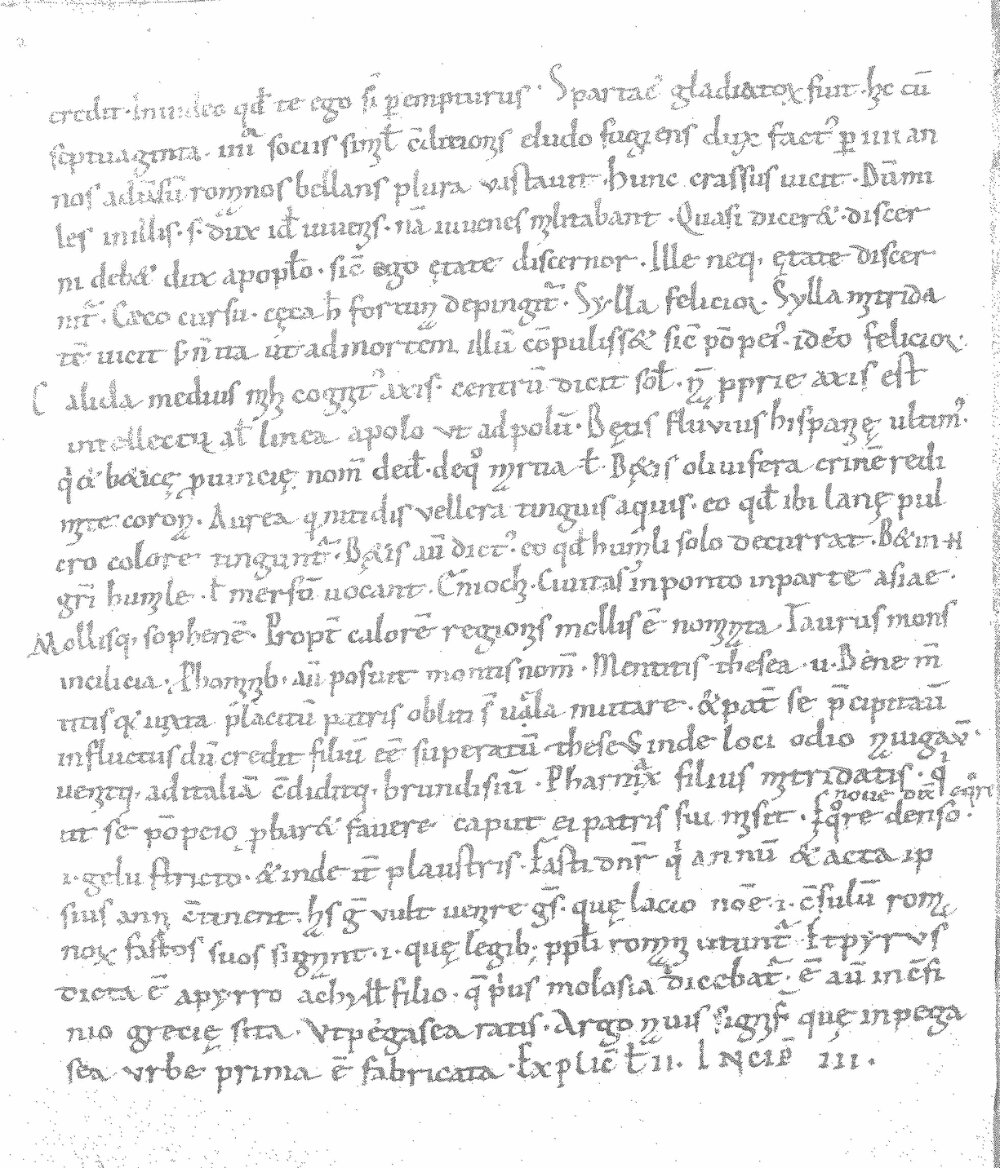 credit · Inuideo qđ te ego ſī pempturus · Spartac̄ gladiatoꝝ fuit · hc cū
ſeptuaginta · iiii ſociis ſiml̄ c̄ditionꝫ eludo fugiens dux fact᾽ ꝑ iiii an
nos aduſū romnos bellans plura uastauit · hunc craſſus uicit · Dūmi
les inillis · ſ · dux id̄ iuuenꝫ · nā iuuenes militabant · Quaſi diceret · diſcer
ni debet dux apopl̄o · ſic̄ ego ętate diſcernor · Ille neq, ętate diſcer
nit̄ · Cęco curſu · cęca h̄ fortun depingit̄ · Sylla felicior · Sylla mitrida
tē uicit ut admortem illū cōpuliſſet ſic̄ pōpei᾽ · ideo felicior ·
C alida medius axis · centrū dicit ſol̄ · proprie axis eſt
intellectu al̄ linea apolo ut adpolū · Bętis fluvius hiſpanę ultim᾽ ·
q̇ et beticę prouincię nom̄ ded̄ · deq᾽ mrtia · t̄ · Betis oliuifera crinē redi
mite coron · Aurea q, nitidis vellera tinguis aquis · eo qđ ibi lanę pul
cro colore tingunt̄ · Betis aū dict᾽ eo qđ humili ſolo decurrat · Betin
grī humile · t̄ merſū uocant · Enioch · Ciuitas inponto inparte aſiae ·
Mollisq, ſophenē · Propt̄ calorē regionꝫ mollis ē nominata Taurus mons
incilicia · aū poſuit montis nom̄ · Mentitis theſea · u · Bene m̄
titis q iuxta placitū patris obliti ſ̄ uāla mutare · et pat̄ ſe p̄cipitaū
influctus dū credit filiū eē ſuperatū theſeus inde loci odio nauigās
ueniq, aditaliā c̄diditq, brundiſiū · Pharnax filius mitridatis · q̄
noue dix̄ eq̄re
ut ſe pōpeio pbaret fauere caput ei patris ſui miſit · denſo ·
ı · gelu ſtricto · et inde it̄ plauſtris · Faſti dnr̄ q̇ annū et acta ip
ſius ann c̄tinent · hſ g̅ vult uenire gſ̄ · quę lacio noē · ı · c̄ſulū rom
noꝝ faſtos ſuos ſignnt · ı · quę legib; ppl̄i romn utunt̄ Et pyrvs
dicta ē apyrro achil̄l filio · q̄ p̄us moloſia dicebat̄ · ē aū inc̄fi
nio grecię ſita · Vt pegaſea ratis · Argo nuis ſignif quę inpega
ſea vrbe prima ē fabricata · Explic̄ l̄ II · INCIP̄ III ·